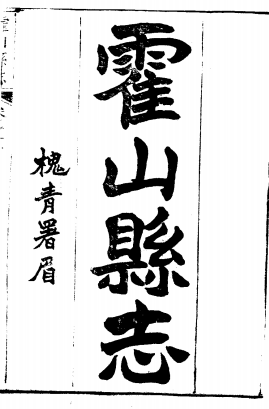 霍山縣志
槐青署眉